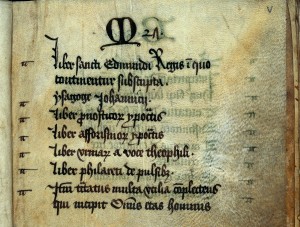 M 21.
Liber sancti Edmundi Regis ī quo
continentur subscripta.
ysagoge Johannicij.
liber pronosticor ypocratis
liber afforismor ypocratis
liber vrinar a voce theophili.
liber philareti de pulsibȝ
Itm tractatus multa vtilia complectens
qui incipit Omnis etas hominis